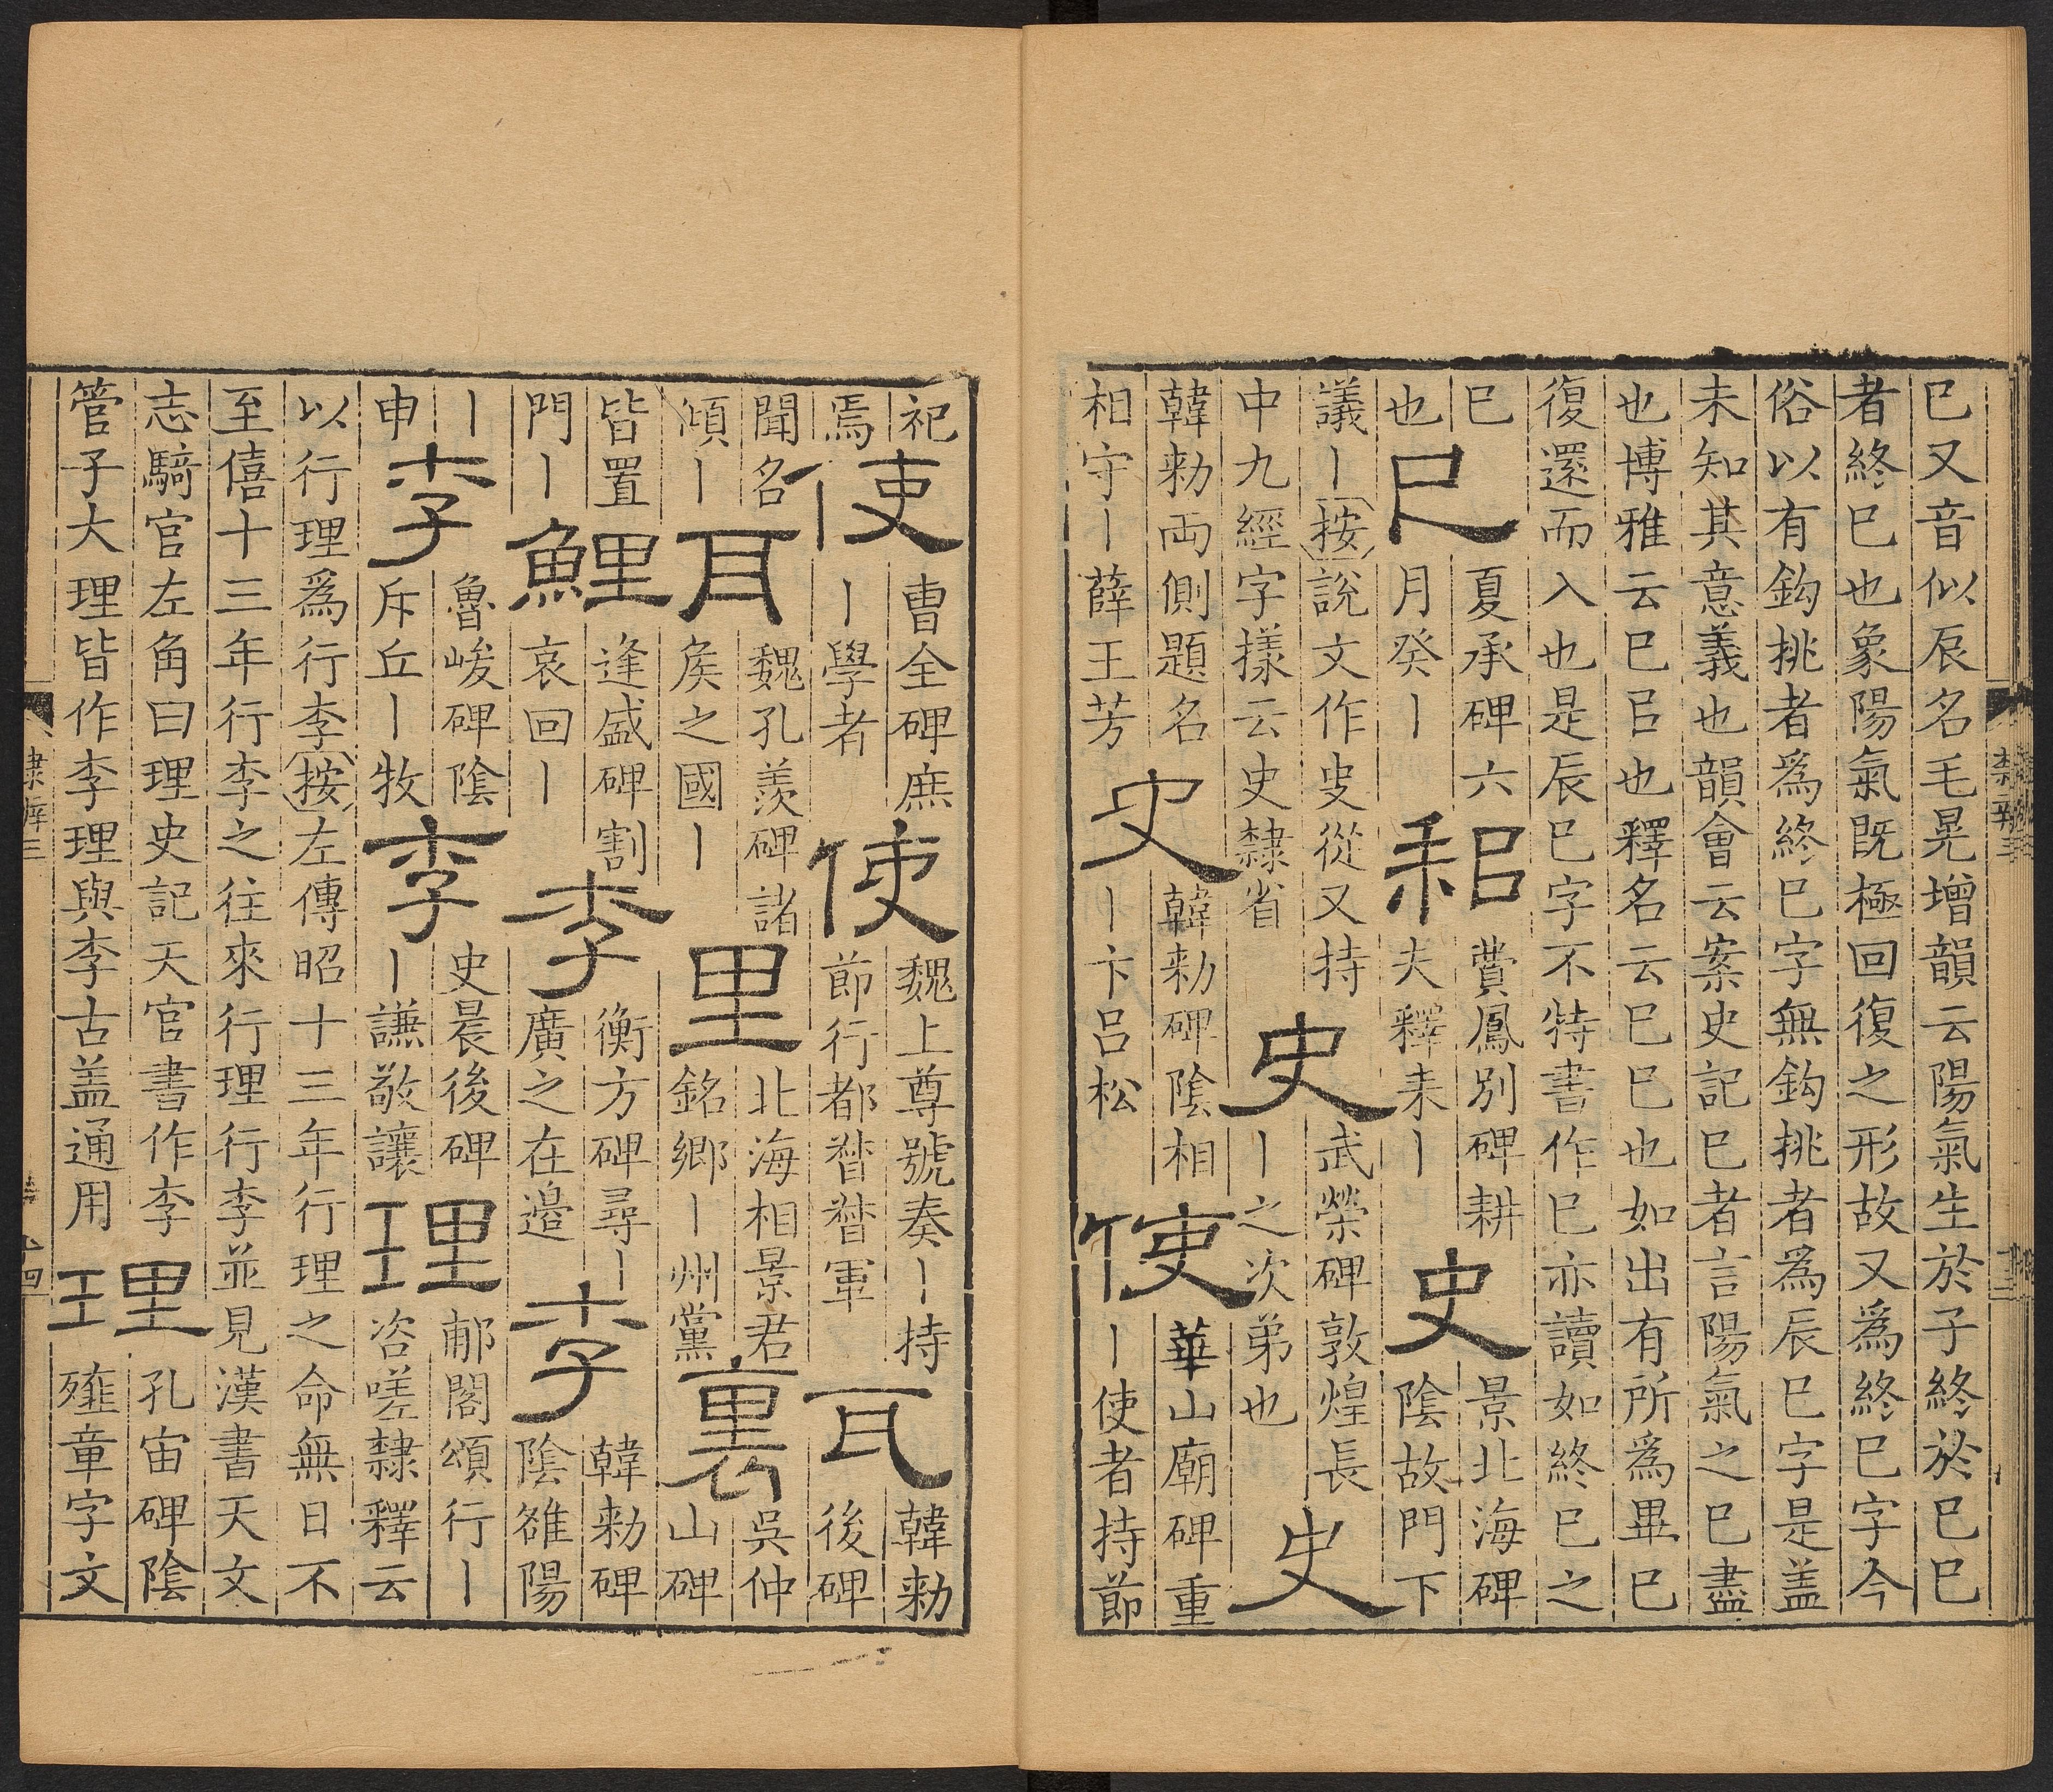 巳又音似辰名毛晃增韻云陽氣生於子終於巳巳
者終巳也象陽氣既極回復之形故又爲終巳字今
俗以有鈎挑者爲終巳字無鈎挑者爲辰巳字是盖
未知其意義也韻會云案史記巳者言陽氣之巳盡
也博雅云巳㠯也釋名云巳巳也如出有所爲畢巳
復還而入也是辰巳字不特書作巳亦讀如終巳之
巳
也
巳
夏承碑六
月癸丨
耜
費鳳別碑耕
夫釋耒丨
史
景北海碑
陰故門下
議丨按說文作㕜從又持
中九經字㨾云史隸省
史
武榮碑敦煌長
丨之次弟也
史
韓勑両側題名
相守丨薛王芳
史
韓勑碑陰相
丨卞呂松
使
華山廟碑重
丨使者持節
祀
焉
使
曹全碑庶
丨學者
使
魏上尊號奏丨持
節行都督督軍
耳
韓勑
後碑
聞名
傾丨
耳
魏孔羨碑諸
侯之國丨
里
北海相景君
銘鄉丨州黨
裏
吳仲
山碑
皆置
門丨
鯉
逢盛碑割
哀回丨
李
衡方碑尋丨
廣之在邉
李
韓勑碑
陰雒陽
丨
申
李
魯峻碑陰
斥丘丨牧
李
史晨後碑
丨謙敬讓
理
郙閣頌行丨
咨嗟隸釋云
以行理爲行李按左傳昭十三年行理之命無日不
至僖十三年行李之往來行理行李並見漢書天文
志騎官左角曰理史記天官書作李
管子大理皆作李理與李古盖通用
理
孔宙碑陰
殣章字文
隸辨三
十四